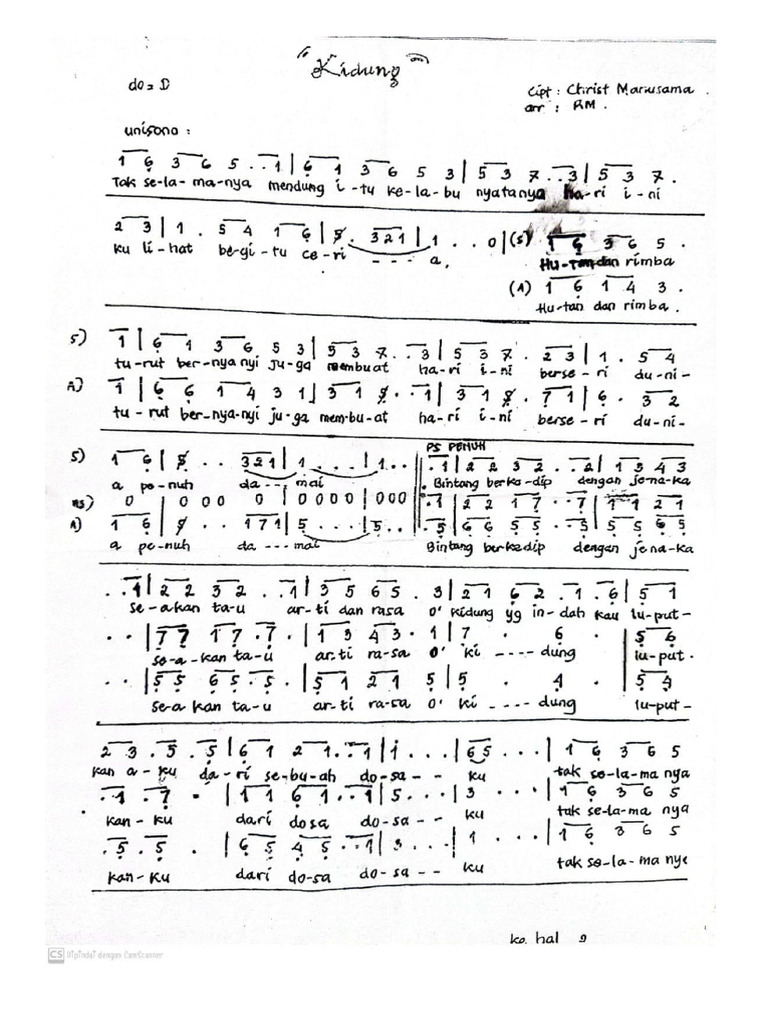 "Kidung"
do = D
Cipt : Christ Manusama .
arr : RM .
unisono :
1 6 3 6 5 . . 1 | 6 1 3 6 5 3 | 5 3 7 . . 3 | 5 3 7 .
Tak se-la-ma-nya mendung i-tu ke-la-bu nyatanya ha-ri i-ni
2 3 | 1 . 5 4 1 6 | 5 . 3 2 1 | 1 . . 0 | (S) 1 6 3 6 5 .
ku li-hat be-gi-tu ce-ri - - - a, Hu-tan dan rimba
(A) 1 6 1 4 3 .
Hu-tan dan rimba .
S) 1 | 6 1 3 6 5 3 | 5 3 7 . . 3 | 5 3 7 . 2 3 | 1 . 5 4
tu-rut ber-nya nyi ju-ga membuat ha-ri i-ni berse-ri du-ni-
A) 1 | 6 6 1 4 3 1 | 3 1 5 . . 1 | 3 1 5 . 7 1 | 6 . 3 2
tu-rut ber-nya-nyi ju-ga mem-bu-at ha-ri i-ni berse-ri du-ni-
PS PENUH
S) 1 6 | 5 . . 3 2 1 | 1 . . . | 1 . . . 1 | 2 2 3 2 . . 2 | 1 5 4 3
a pe-nuh da - - - mai Bintang berke-dip dengan je-na-ka
MS) 0 0 0 0 0 | 0 0 0 0 | 0 0 0 . 1 | 2 2 1 7 . . 7 | 1 1 2 1
A) 1 6 | 5 . . 1 7 1 | 5 . . . | 5 . . . 5 | 6 6 5 5 . . 5 | 5 5 6 5
a pe-nuh da - - - mai Bintang berkedip dengan je na-ka
. . 1 | 2 2 3 2 . . 1 | 3 5 6 5 . 3 | 2 1 6 2 . 1 . 6 | 5 1
se-akan ta-u ar-ti dan rasa o' kidung yg in-dah kau lu-put-
. . | 7 7 1 7 . 7 . | 1 3 4 3 . 1 | 7 . 6 . | 5 6
se-a-kan ta-u ar-ti ra-sa o' ki - - - - dung lu-put -
. . | 5 5 6 5 . 5 . | 5 1 2 1 5 | 5 . 4 . | 5 4
se-a kan ta-u ar-ti ra-sa o' ki - - - - dung lu-put -
2 3 . 5 . 5 | 6 1 2 1 . . 1 | 1 . . . | 6 5 . . . | 1 6 3 6 5
kan a-ku da-ri se-bu-ah do-sa - - ku tak se-la-ma nya
. 1 . 7 . | 1 1 6 1 . . 1 | 5 . . . | 3 . . . | 1 6 3 6 5
kan-ku dari dosa do-sa - - ku tak se-la-ma nya
. 5 . 5 . | 6 5 4 5 . . 1 | 3 . . . | 1 . . . | 1 6 3 6 5
kan-ku dari do-sa do-sa - - ku tak se-la-ma nya
ke hal 2
CS Dipindai dengan CamScanner